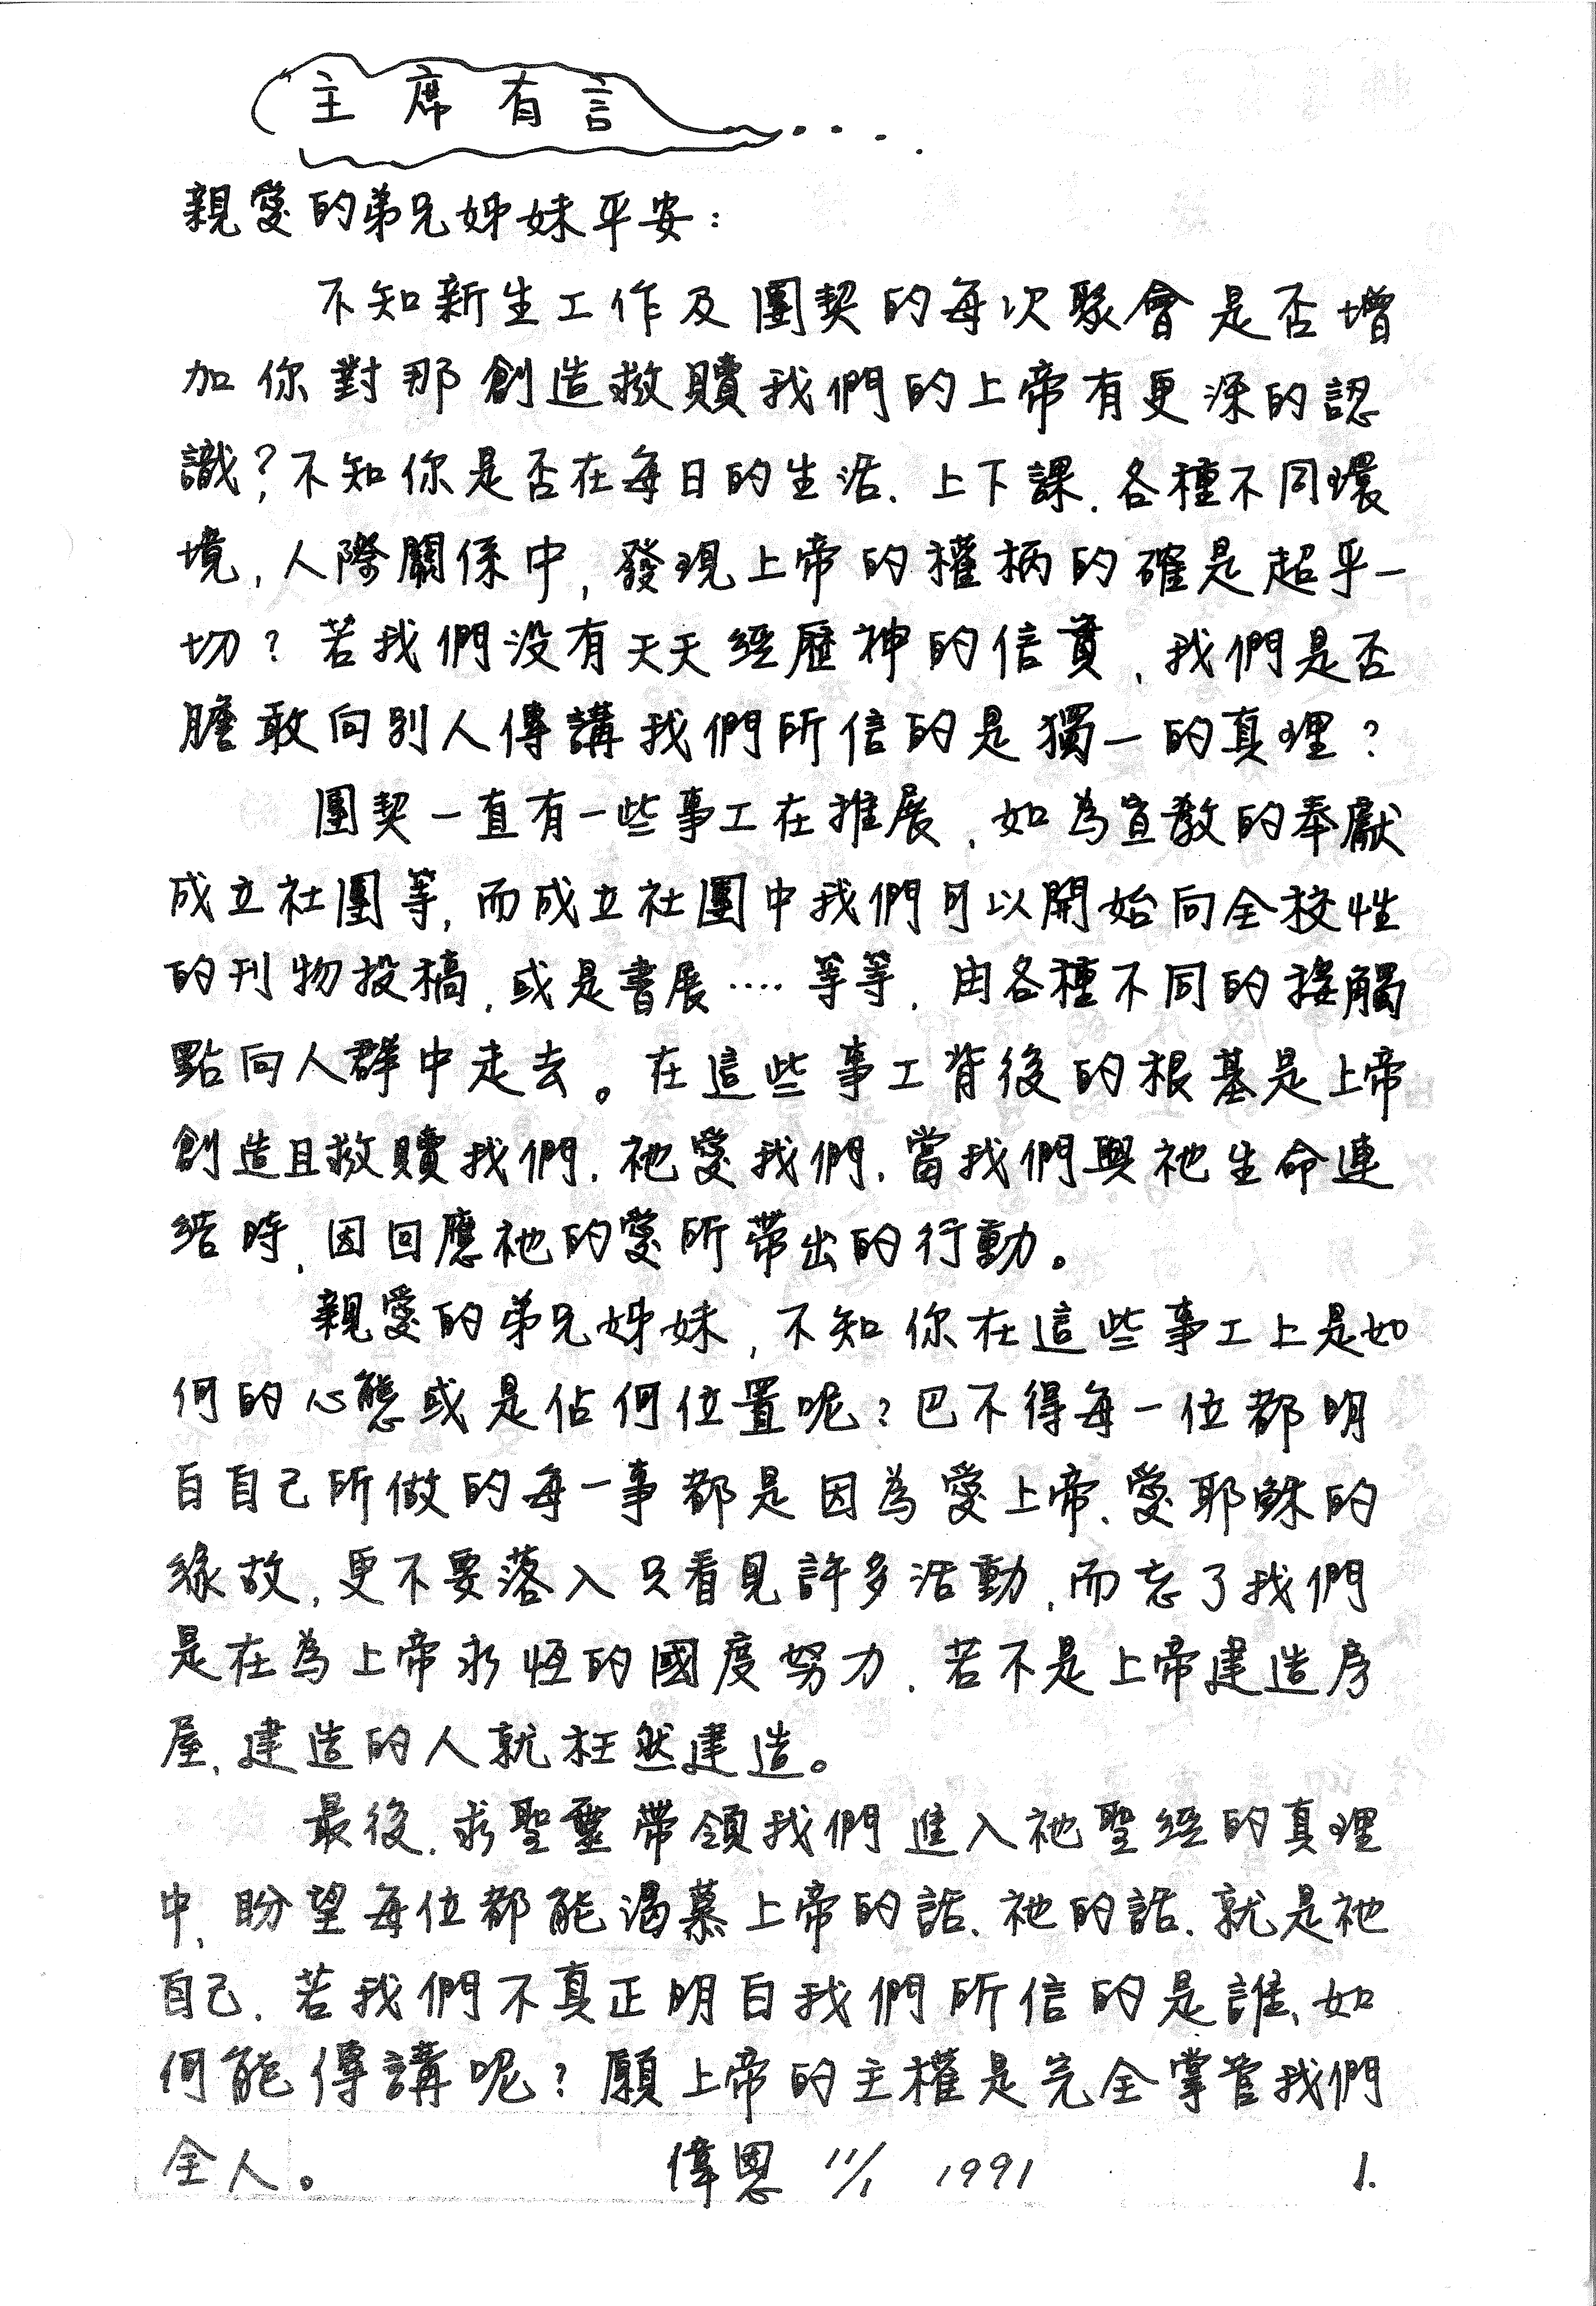 主席有言....
親愛的弟兄姊妹平安：
不知新生工作及團契的每次聚會是否增
加你對那創造救贖我們的上帝有更深的認
識？不知你是否在每日的生活、上下課、各種不同環
境，人際關係中，發現上帝的權柄的確是超乎一
切？若我們沒有天天經歷神的信實，我們是否
膽敢向別人傳講我們所信的是獨一的真理？
團契一直有一些事工在推展，如為宣教的奉獻
成立社團等，而成立社團中我們可以開始向全校性
的刊物投稿，或是書展‥‥等等，由各種不同的接觸
點向人群中走去。在這些事工背後的根基是上帝
創造且救贖我們，祂愛我們，當我們與祂生命連
結時，因回應祂的愛所帶出的行動。
親愛的弟兄姊妹，不知你在這些事工上是如
何的心態或是佔何位置呢？巴不得每一位都明
白自己所做的每一事都是因為愛上帝、愛耶穌的
緣故，更不要落入只看見許多活動，而忘了我們
是在為上帝永恆的國度努力，若不是上帝建造房
屋，建造的人就枉然建造。
最後，求聖靈帶領我們進入祂聖經的真理
中，盼望每位都能渴慕上帝的話、祂的話、就是祂
自己，若我們不真正明白我們所信的是誰、如
何能傳講呢？願上帝的主權是完全掌管我們
全人。 偉恩 11/1 1991 1.